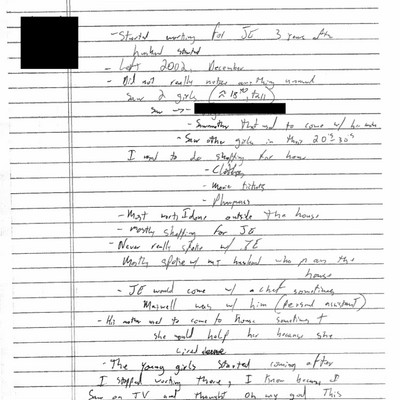 - Started working for JE 3 years after
husband started
- Left 2002, December
- Did not really notice anything unusual
Saw 2 girls (≈ 18, tall)
saw →
- Saw other girls in their 20's 30s
I used to do shopping for home
- Clothing
- movie
- Most work I done outside the house
- mostly shopping for JE
- Never really spoke w/ JE
Mostly spoke w/ my husband who ran the
house
- JE would come w/ a chef sometimes
Maxwell was w/ him (personal assistant)
- His mother used to come to home sometimes +
she would help her because she
- The young girls started coming after
I stopped working there, I know because I
Saw on TV and thought oh my god This